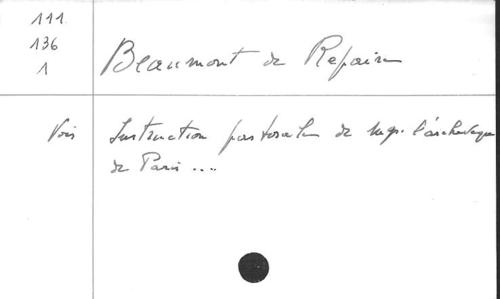 111
136
1
Beaumont de Repaire
Voir Instruction pastorale de Mgr. l'archevêque
de Paris ....